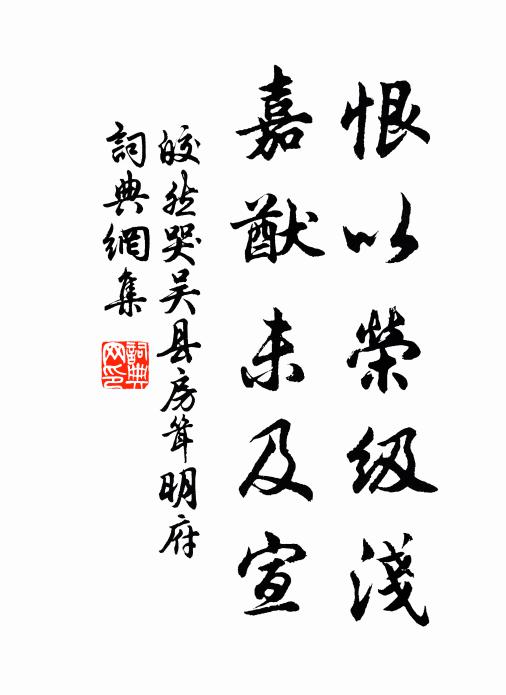 恨以榮级淺
嘉猷未及宣
皎然哭吴县房耸明府
詞典網集
詞典网印